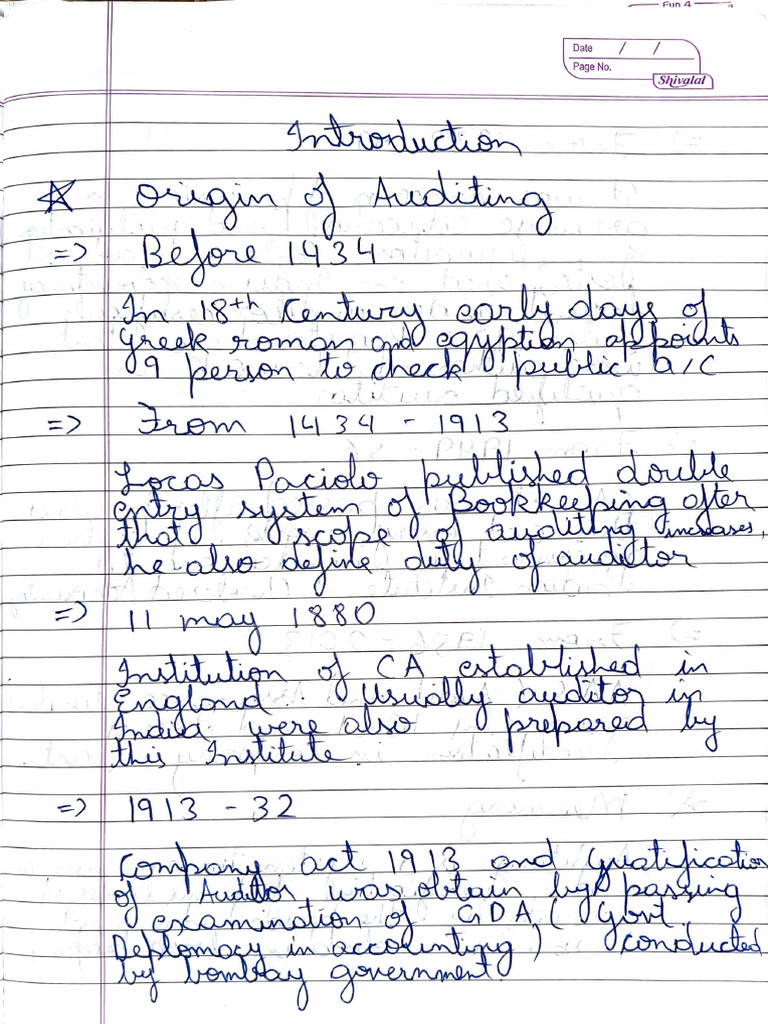 Fun 4
Date / /
Page No.
Shivalal
Introduction
☆ Origin of Auditing
=> Before 1434
In 18th Century early days of
Greek roman and egyption appoints
9 person to check public a/c
=> From 1434 - 1913
Locas Paciolo published double
entry system of Bookkeeping after
that scope of auditing increases,
he also define duty of auditor
=> 11 may 1880
Institution of CA established in
England. Usually auditor in
India were also prepared by
this Institute.
=> 1913 - 32
Company act 1913 and Qualification
of Auditor was obtain by passing
examination of GDA (Govt.
Deplomacy in accounting) conducted
by bombay government.